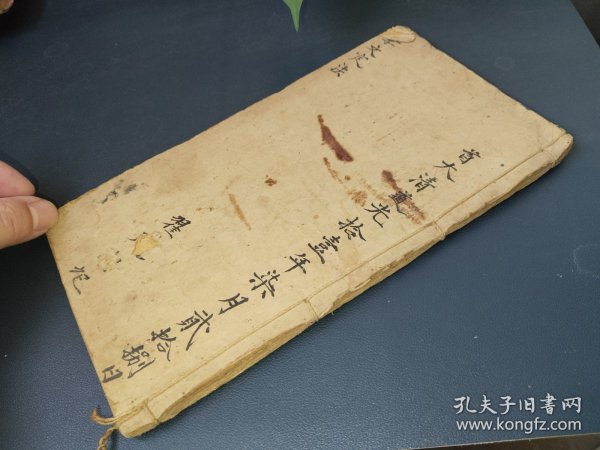 大清道光拾壹年柒月贰拾捌日
文定法
记
孔夫子旧书网
www.kongfz.com